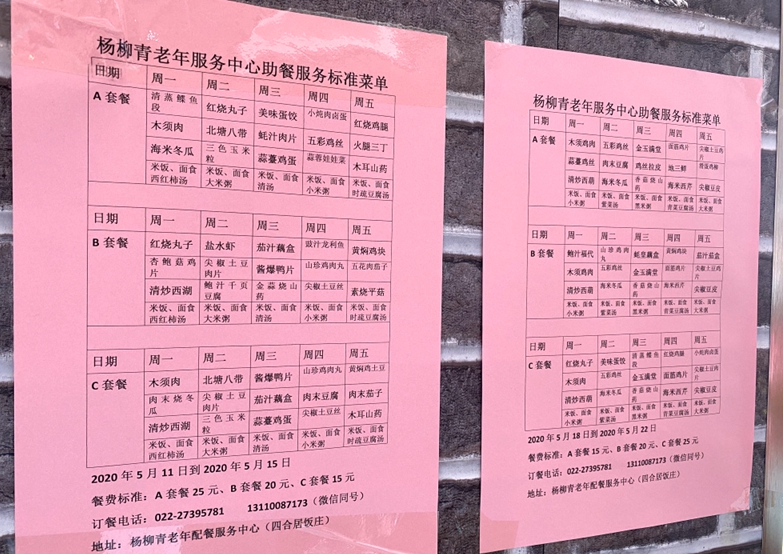 杨柳青老年服务中心助餐服务标准菜单
日期 周一 周二 周三 周四 周五
A 套餐 清蒸鲽鱼段 红烧丸子 美味蛋饺 小炖肉卤蛋 红烧鸡腿
木须肉 北塘八带 蚝汁肉片 五彩鸡丝 火腿三丁
海米冬瓜 三色玉米粒 蒜薹鸡蛋 蒜蓉娃娃菜 木耳山药
米饭、面食西红柿汤 米饭、面食大米粥 米饭、面食清汤 米饭、面食小米粥 米饭、面食时疏豆腐汤
日期 周一 周二 周三 周四 周五
B 套餐 红烧丸子 盐水虾 茄汁藕盒 豉汁龙利鱼 黄焖鸡块
杏鲍菇鸡片 尖椒土豆肉片 酱爆鸭片 山珍鸡肉丸 五花肉茄子
清炒西湖 鲍汁千页豆腐 金蒜烧山药 尖椒土豆丝 素烧平菇
米饭、面食西红柿汤 米饭、面食大米粥 米饭、面食清汤 米饭、面食小米粥 米饭、面食时疏豆腐汤
日期 周一 周二 周三 周四 周五
C 套餐 木须肉 北塘八带 酱爆鸭片 山珍鸡肉丸 黄焖鸡土豆
肉末烧冬瓜 尖椒土豆肉片 茄汁藕盒 肉末豆腐 肉末茄子
清炒西湖 三色玉米粒 蒜薹鸡蛋 尖椒土豆丝 木耳山药
米饭、面食西红柿汤 米饭、面食大米粥 米饭、面食清汤 米饭、面食小米粥 米饭、面食时疏豆腐汤
2020 年 5 月 11 日到 2020 年 5 月 15 日
餐费标准：A 套餐 25 元、B 套餐 20 元、C 套餐 15 元
订餐电话：022-27395781 13110087173（微信同号）
地址：杨柳青老年配餐服务中心（四合居饭庄）
杨柳青老年服务中心助餐服务标准菜单
日期 周一 周二 周三 周四 周五
A 套餐 木须鸡肉 五彩鸡丝 金玉满堂 面筋鸡片 尖椒土豆鸡片
蒜薹鸡丝 肉末豆腐 鸡丝拉皮 地三鲜
清炒西葫 海米冬瓜 香菇烧山药 海米西芹 尖椒豆皮
米饭、面食小米粥 米饭、面食紫菜汤 米饭、面食黑米粥 米饭、面食青菜豆腐汤 米饭、面食大米粥
日期 周一 周二 周三 周四 周五
B 套餐 鲍汁福代 山珍鸡肉丸 蚝皇藕盒 黄焖鸡块 茄汁茄盒
木须鸡肉 五彩鸡丝 金玉满堂 面筋鸡片 尖椒土豆鸡片
清炒西葫 海米冬瓜 香菇烧山药 海米西芹 尖椒豆皮
米饭、面食小米粥 米饭、面食紫菜汤 米饭、面食黑米粥 米饭、面食青菜豆腐汤 米饭、面食大米粥
日期 周一 周二 周三 周四 周五
C 套餐 红烧丸子 美味蛋饺 清蒸鲽鱼段 红烧鸡腿 小炖肉卤蛋
木须肉 五彩鸡丝 金玉满堂 面筋鸡片 尖椒土豆鸡片
清炒西葫 海米冬瓜 香菇烧山药 海米西芹 尖椒豆皮
米饭、面食小米粥 米饭、面食紫菜汤 米饭、面食黑米粥 米饭、面食青菜豆腐汤 米饭、面食大米粥
2020 年 5 月 18 日到 2020 年 5 月 22 日
餐费标准：A 套餐 15 元、B 套餐 20 元、C 套餐 25 元
订餐电话：022-27395781 13110087173（微信同号）
地址：杨柳青老年配餐服务中心（四合居饭庄）